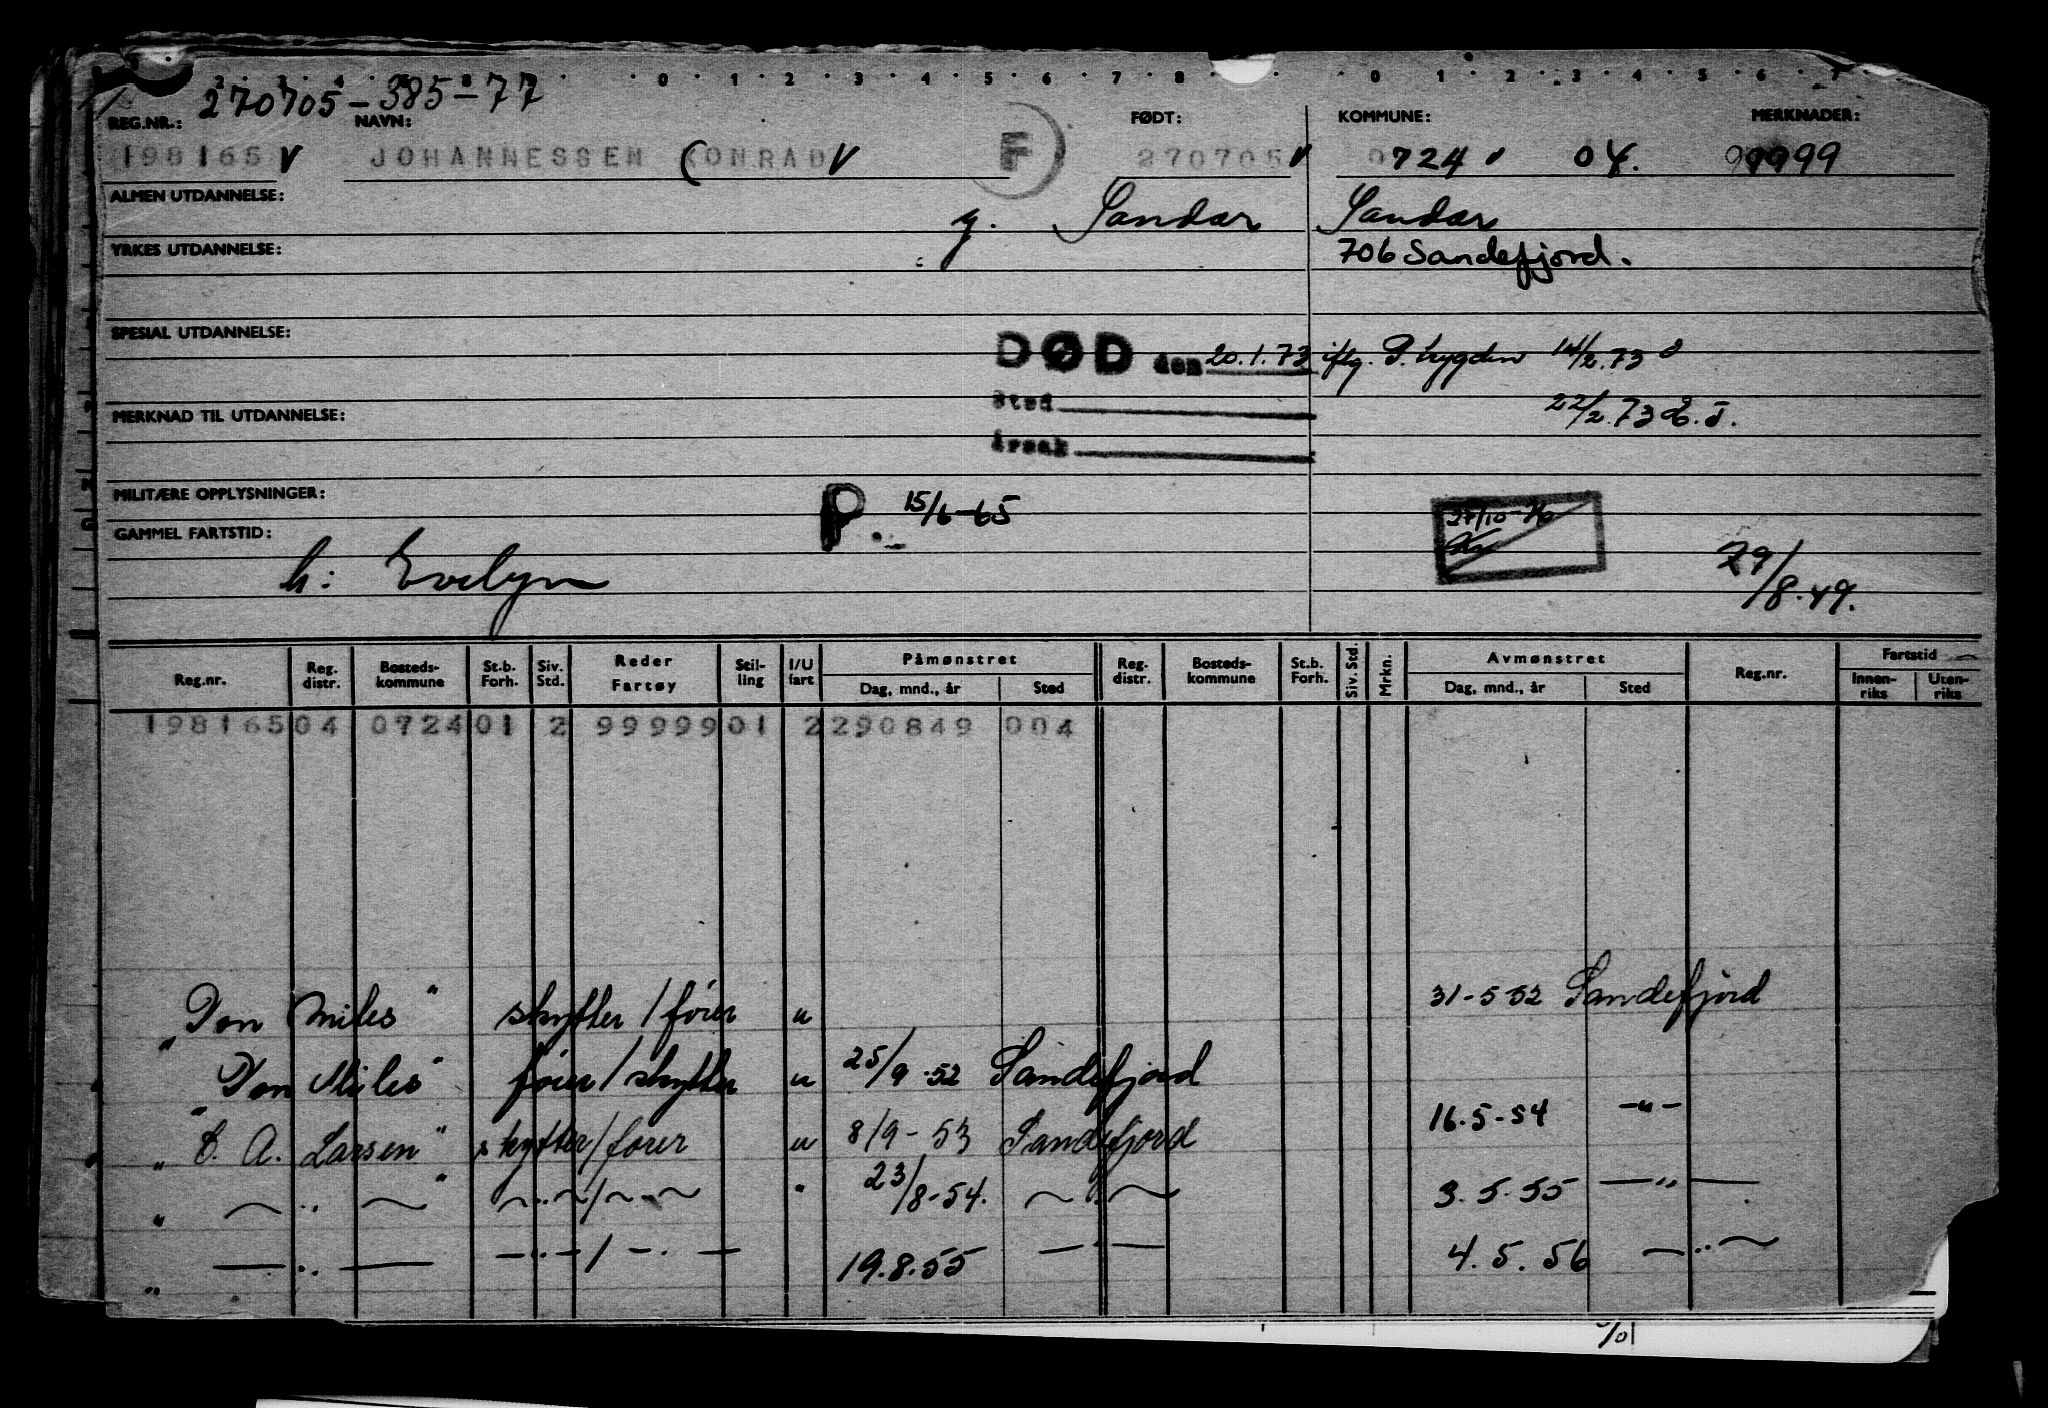 270705-385-77
REG.NR.: NAVN: FØDT: KOMMUNE: MERKNADER:
198165 V JOHANNESSEN KONRAD V F 270705 V 0724 04. 99999
ALMEN UTDANNELSE: g. Sandar Sandar
YRKES UTDANNELSE: 706 Sandefjord.
SPESIAL UTDANNELSE: DØD den 20.1.73 iflg. P. trygden 14/2.73
Sted 22/2.73
MERKNAD TIL UTDANNELSE:
Årsak
MILITÆRE OPPLYSNINGER: P. 15/6-65 27/10-70
GAMMEL FARTSTID: 29/8.49.
h: Evelyn
Reg.nr. Reg. distr. Bosteds-kommune St.b. Forh. Siv. Std. Reder Fartøy Stil-ling I/U fart Påmønstret Dag, mnd., år Sted Reg. distr. Bosteds-kommune St.b. Forh. Siv. Std. Mrkn. Avmønstret Dag, mnd., år Sted Reg.nr. Fartstid Innen-riks Uten-riks
198165 04 0724 01 2 99999 01 2 290849 004
"Ian Miles" skytter / fører u 31-5-52 Sandefjord
"Ian Miles" fører / skytter u 25/9.52 Sandefjord 16.5-54 -"-
"C. A. Larsen" skytter / fører u 8/9-53 Sandefjord
" ~ .. ~ " ~ .. ~ / ~ .. ~ " 23/8-54. ~ .. ~ 3.5.55 -"-
" — .. — — .. — / — .. — 19.8.55 — .. — 4.5.56 ~ .. ~